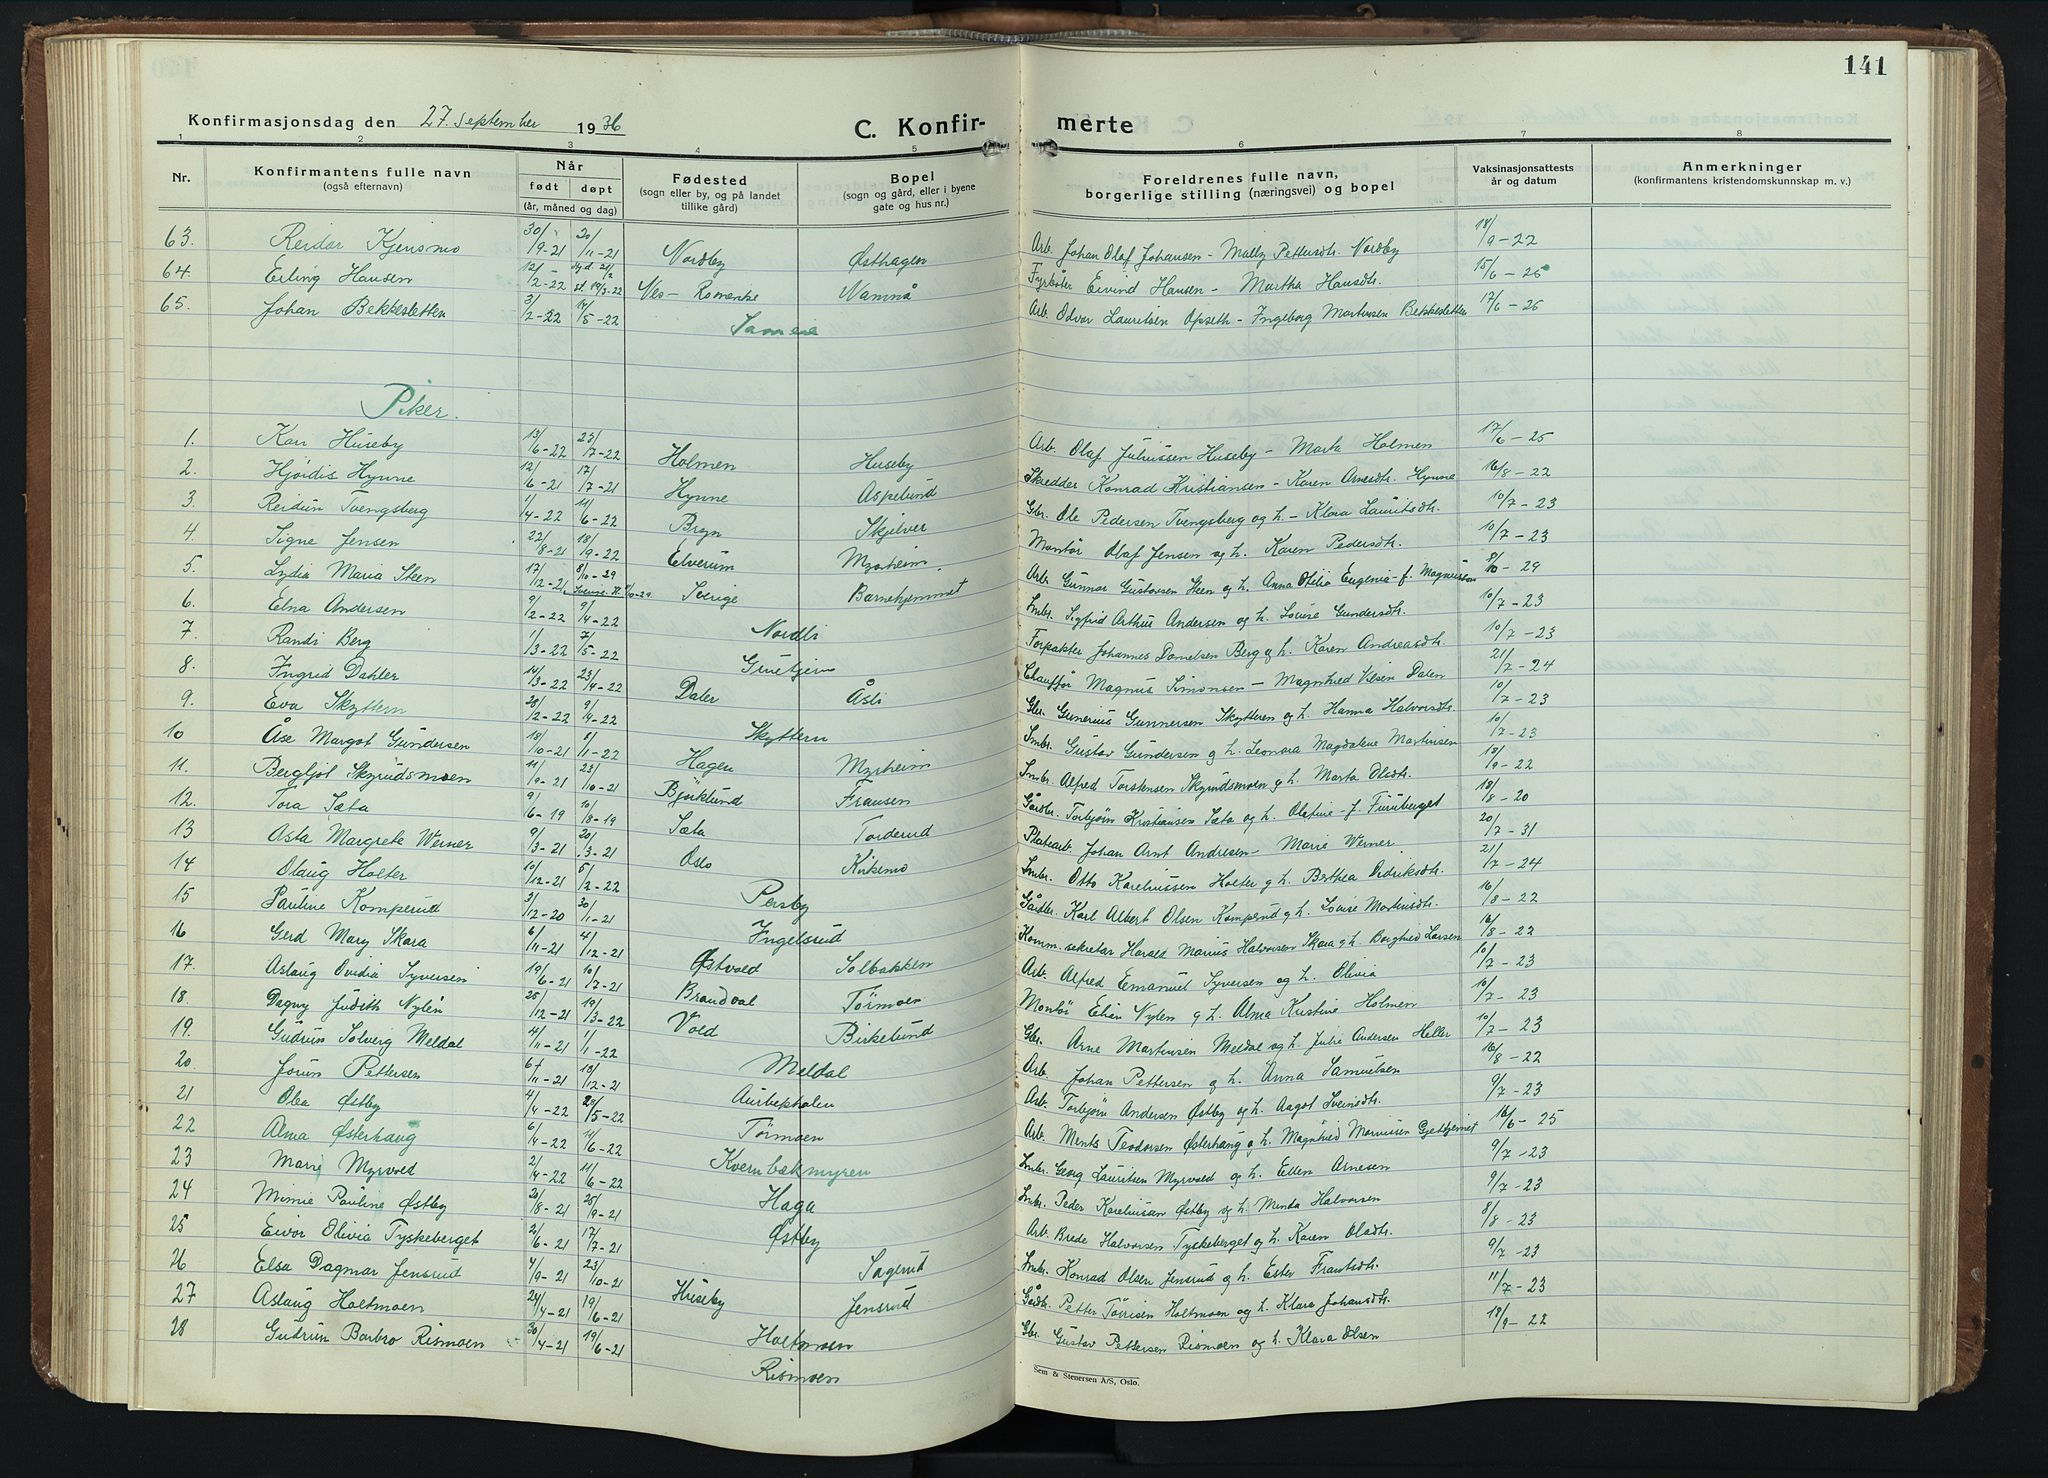 141
Konfirmasjonsdag den 27. September 1936
C. Konfirmerte
1 2 3 4 5 6 7 8
Nr. Konfirmantens fulle navn (også efternavn) Når født døpt (år, måned og dag) Fødested (sogn eller by, og på landet tillike gård) Bopel (sogn og gård, eller i byene gate og hus nr.) Foreldrenes fulle navn, borgerlige stilling (næringsvei) og bopel Vaksinasjonsattests år og datum Anmerkninger (konfirmantens kristendomskunnskap m. v.)
63. Reidar Kjensmo 30/9-21 20/11-21 Nordby Østhagen Arb. Johan Olaf Johansen - Mally Pettersdtr. Nordby 18/9-22
64. Erling Hansen 12/2-22 Hjd. 21/2 st. 19/3-22 Nes- Romerike Namnå Fyrbøter Eivind Hansen - Martha Hansdtr. 15/6-25
65. Johan Bekkesletten 3/2-22 14/5-22 Sameie Arb. Odvar Lauritsen Opseth - Ingeborg Martinsen Bekkesletten 17/6-26
Piker.
1. Kari Huseby 13/6-22 23/7-22 Holmen Huseby Arb. Olaf Juliussen Huseby - Marta Holmen 17/6-25
2. Hjørdis Hynne 12/6-21 17/7-21 Hynne Aspelund Skredder Konrad Kristiansen - Karen Arnesdtr. Hynne 16/8-22
3. Reidun Tvengsberg 1/4-22 11/6-22 Bryn Skjelver Gbr. Ole Pedersen Tvengsberg og h. - Klara Lauritsdtr. 10/7-23
4. Signe Jensen 22/8-21 18/9-22 Elverum Myrheim Montør Olaf Jensen og h. Karen Pedersdtr. 10/7-23
5. Lydia Maria Steen 17/12-21 8/10-29 Sverige Barnehjemmet Arb. Gunnar Gustavsen Steen og h. Anna Otilia Eugenia f. Magnusson 8/10-29
6. Elna Andersen 9/2-22 9/4-22 Nordli Smbr. Sigfrid Arthur Andersen og h. Lovise Gundersdtr. 10/7-23
7. Randi Berg 1/3-22 7/5-22 Gruetjern Forpakter Johannes Danielsen Berg og h. Karen Andreasdtr. 10/7-23
8. Ingrid Dahler 14/3-22 23/4-22 Daler Åsli Chauffør Magnus Simonsen - Magnhild Nilsen Dalen 21/7-24
9. Eva Skyttern 20/2-22 9/4-22 Skyttern Gbr. Gunerius Gunnersen Skytteren og h. Hanna Halvorsdtr. 10/7-23
10 Åse Margot Gundersen 18/10-21 8/11-22 Hagen Myrheim Smbr. Gustav Gundersen og h. Leonora Magdalene Martinsen 10/7-23
11. Bergljot Skyrudsmoen 11/9-21 23/10-21 Bjørklund Fransen Smbr. Alfred Torstensen Skyrudsmoen og h. Marta Olsdtr. 18/9-22
12. Tora Sæta 9/6-19 10/8-19 Sæta Torderud Gårdbr. Torbjørn Kristiansen Sæta og h. Olefine f. Furuberget 18/8-20
13 Asta Margrete Werner 9/3-21 20/3-21 Oslo Kirkemo Platearb. Johan Arnt Andresen - Marie Werner. 20/7-31
14 Olaug Holter 10/12-21 5/2-22 Persby Smbr. Otto Kareliussen Holter og h. Berthea Didriksdtr. 21/7-24
15 Pauline Komperud 3/12-20 30/1-21 Ingelsrud Gårdbr. Karl Albert Olsen Komperud og h. Lovise Martinsdtr. 16/8-22
16 Gerd Mary Skara 6/11-21 4/12-21 Østvold Solbakken Komm.sekretær Harald Marius Halvorsen Skara og h. Borghild Larsen 16/8-22
17. Aslaug Ovidia Syversen 19/6-21 10/7-21 Brandval Tørmoen Arb. Alfred Emanuel Syversen og h. Olivia 10/7-23
18. Dagny Judith Nylén 25/12-21 19/3-22 Vold Birkelund Montør Elian Nylen og h. Alma Kristine Holmen 10/7-23
19. Gudrun Solveig Meldal 4/11-21 1/1-22 Meldal Gbr. Arne Martinsen Meldal og h. Julie Andersen Heller 10/7-23
20. Jorun Pettersen 6/11-21 18/12-21 Aurbepholen Arb. Johan Pettersen og h. Anna Samuelsen 16/8-22
21 Olea Østby 4/4-22 25/5-22 Tørmoen Arb. Torbjørn Andersen Østby og h. Aagot Sveinsdtr. 9/7-23
22 Alma Østerhaug 6/4-22 11/6-22 Kvernbekmyren Arb. Ments Teodorsen Østerhaug og h. Magnhild Marinisen Gjettjernet 16/6-25
23 Marie Myrvold 2/4-22 11/6-22 Haga Smbr. Georg Lauritsen Myrvold og h. Ellen Arnesen 9/7-23
24 Mimie Pauline Østby 20/8-21 25/9-21 Østby Smbr. Peder Kareliussen Østby og h. Minda Halvorsen 9/7-23
25 Eivor Olivia Tyskeberget 2/6-21 17/7-21 Sagerud Arb. Brede Halvorsen Tyskeberget og h. Karen Oladtr. 8/8-23
26 Elsa Dagmar Jensrud 4/9-21 23/10-21 Huseby Jensrud Smbr. Konrad Olsen Jensrud og h. Ester Frantsdtr. 9/7-23
27 Aslaug Holtmoen 24/4-21 19/6-21 Holtmoen Gårdbr. Petter Tørrisen Holtmoen og h. Klara Johansdtr. 11/7-23
28 Gudrun Barbro Rismoen 30/4-21 19/6-21 Rismoen Gbr. Gustav Pettersen Rismoen og h. Klara Olsen 18/9-22
Sem & Stenersen A/S, Oslo.